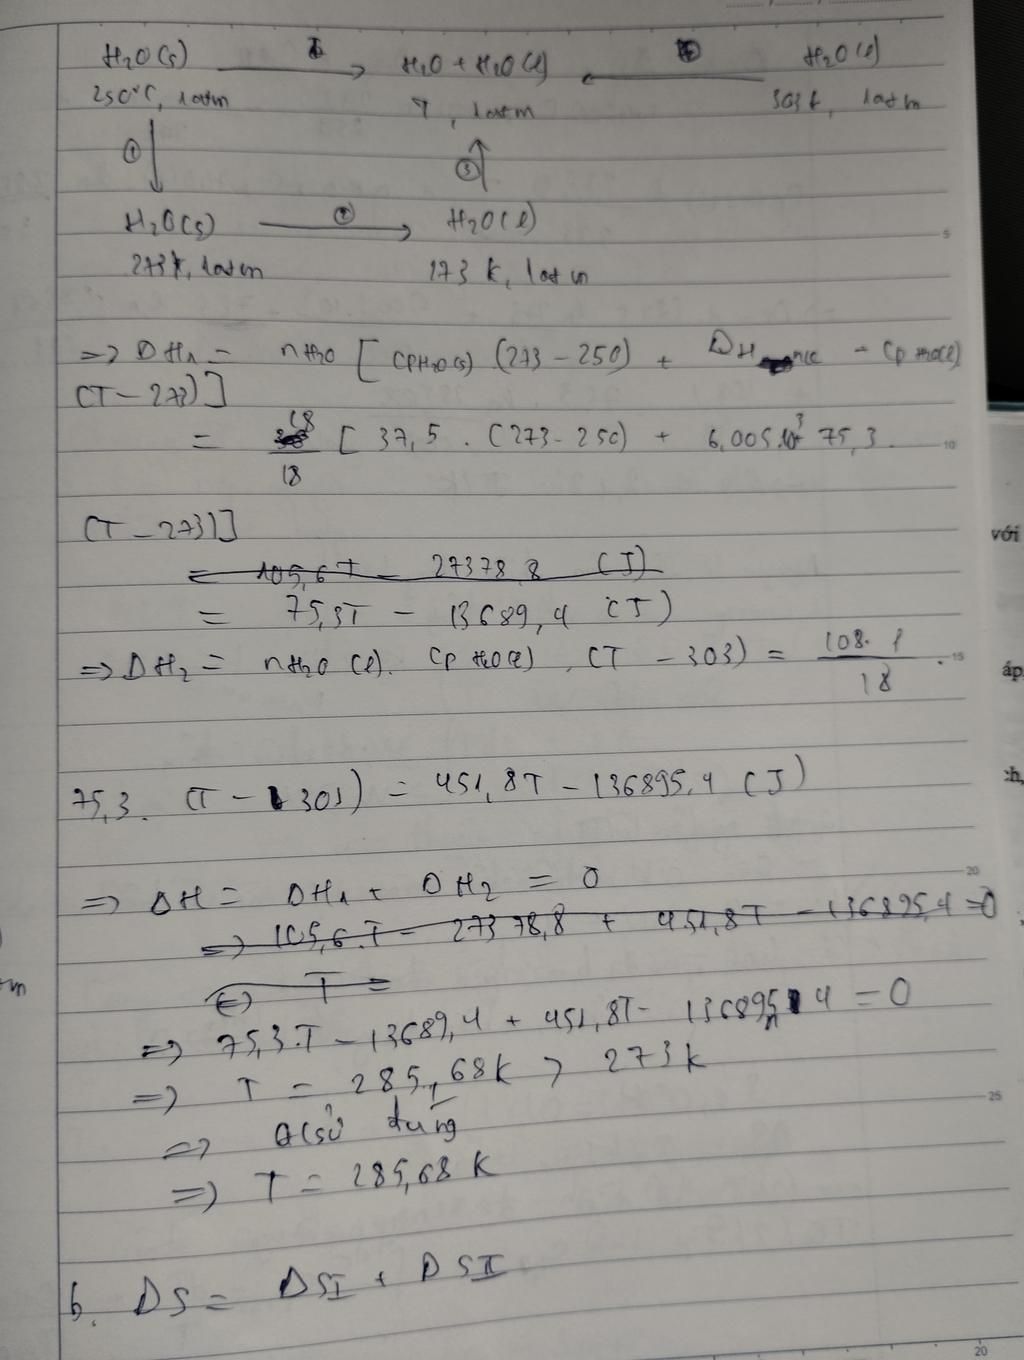 H₂O(s) → I H₂O + H₂O(l) ← II H₂O(l)
250°C, 1atm T, 1atm 303k, 1atm
① ↓ ③ ↑
H₂O(s) ② → H₂O(l)
273k, 1atm 273 k, 1atm
=> ΔH₁ = nH₂O [CpH₂O(s) (273 - 250) + ΔH nc - Cp H₂O(l)
(T - 273)]
= 18/18 [37,5 . (273 - 250) + 6,005.10³ 75,3.
(T - 273)]
= 105,6T - 27378,8 (J)
= 75,3T - 13689,4 (J)
=> ΔH₂ = nH₂O(l). Cp H₂O(l) . (T - 303) = 108.1/18 .
75,3. (T - 303) = 451,8T - 136895,4 (J)
=> ΔH = ΔH₁ + ΔH₂ = 0
=> 105,6.T - 27378,8 + 451,8T - 136895,4 = 0
<=> T =
=> 75,3.T - 13689,4 + 451,8T - 136895,4 = 0
=> T = 285,68k > 273k
=> Gỉsử đúng
=> T = 285,68 k
b. ΔS = ΔSI + ΔSII
với
áp
5
10
15
20
25
20